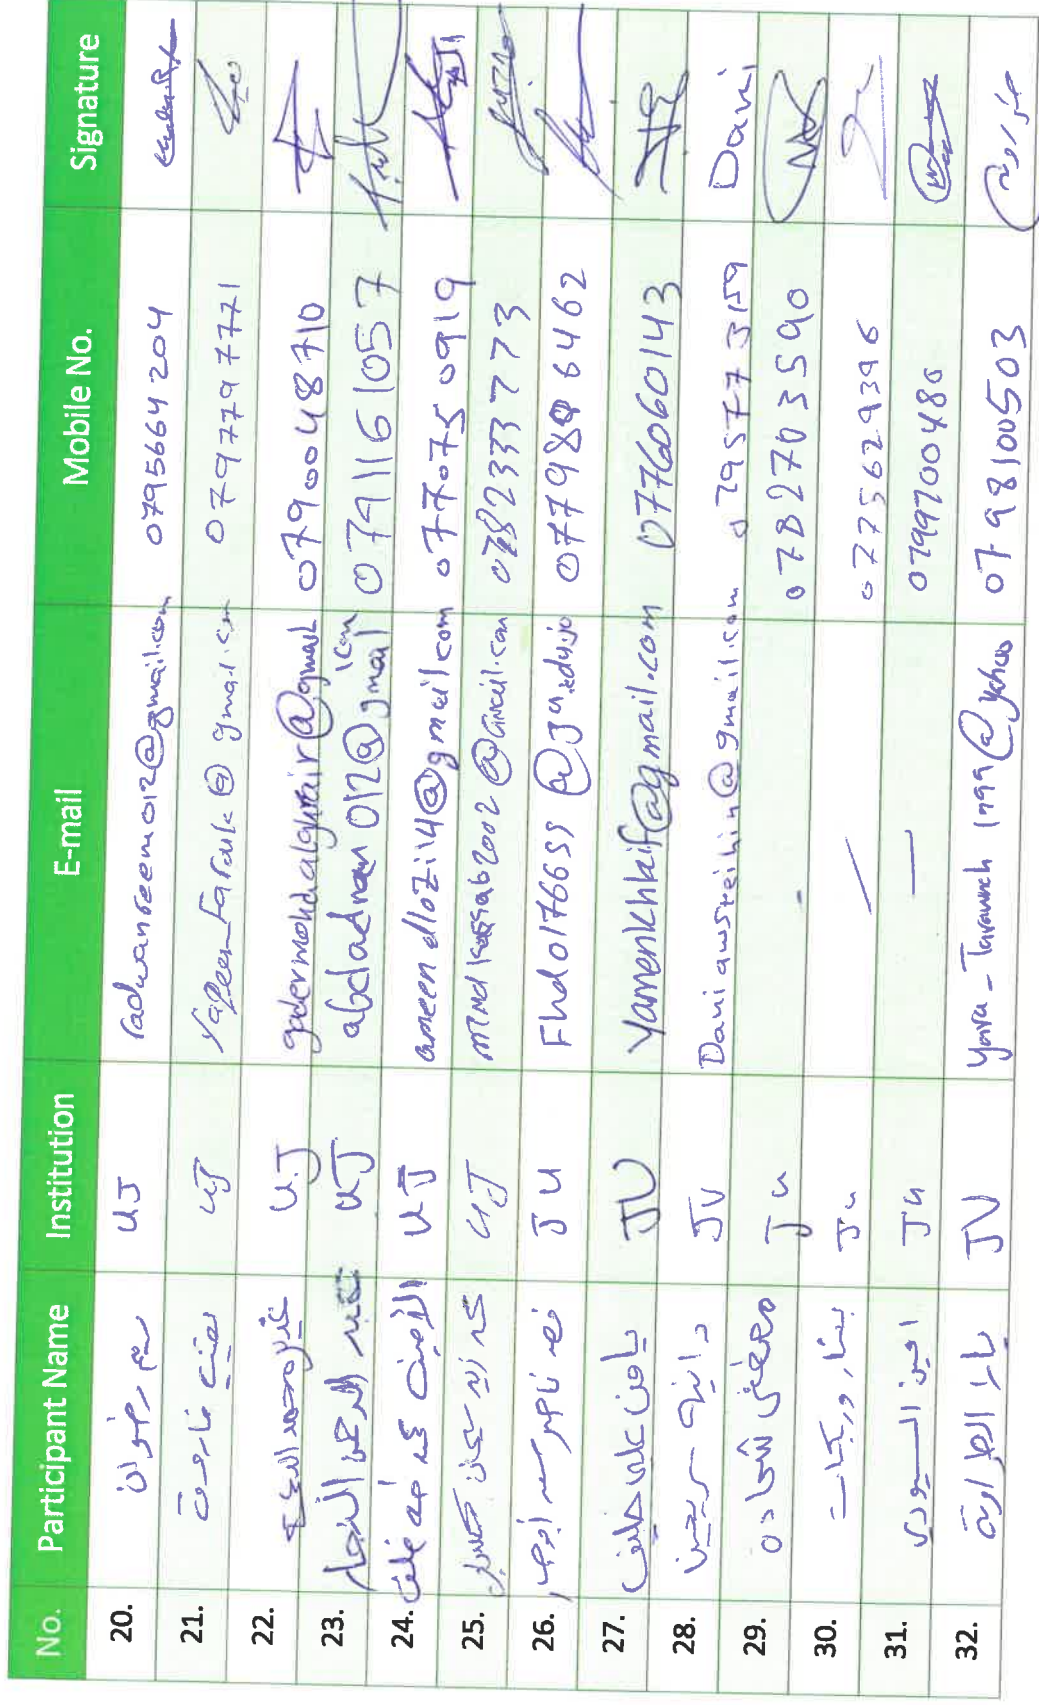 No. Participant Name Institution E-mail Mobile No. Signature
20. ريم رضوان UJ radwanreem012@gmail.com 0795664204
21. يقين فاروق UJ Yaqeen_Farouk@gmail.com 0797797771
22. غدير محمد U.J gadermohdalghrair@gmail 0790048710
23. عبد الرحمن النجار UJ abdadnan012@gmail.com 0791161057
24. الأمين UJ ameenellozi14@gmail.com 0770750919
25. UJ mhdkassab2002@Gmail.com 0782333773
26. فهد ناصر JU Fhd0176635@ju.edu.jo
27. يامن علي خليف JU Yamenkhlaif@gmail.com 0776060143
28. دانية سريحين JU Daniawsreihin@gmail.com 0795773159 Dani
29. شحادة Ju 0782703590
30. بشار وريكات Ju 0775629396
31. Ju 0799700480
32. يارا الطراونة JU Yara-Tarawneh1999@yahoo 0798100503